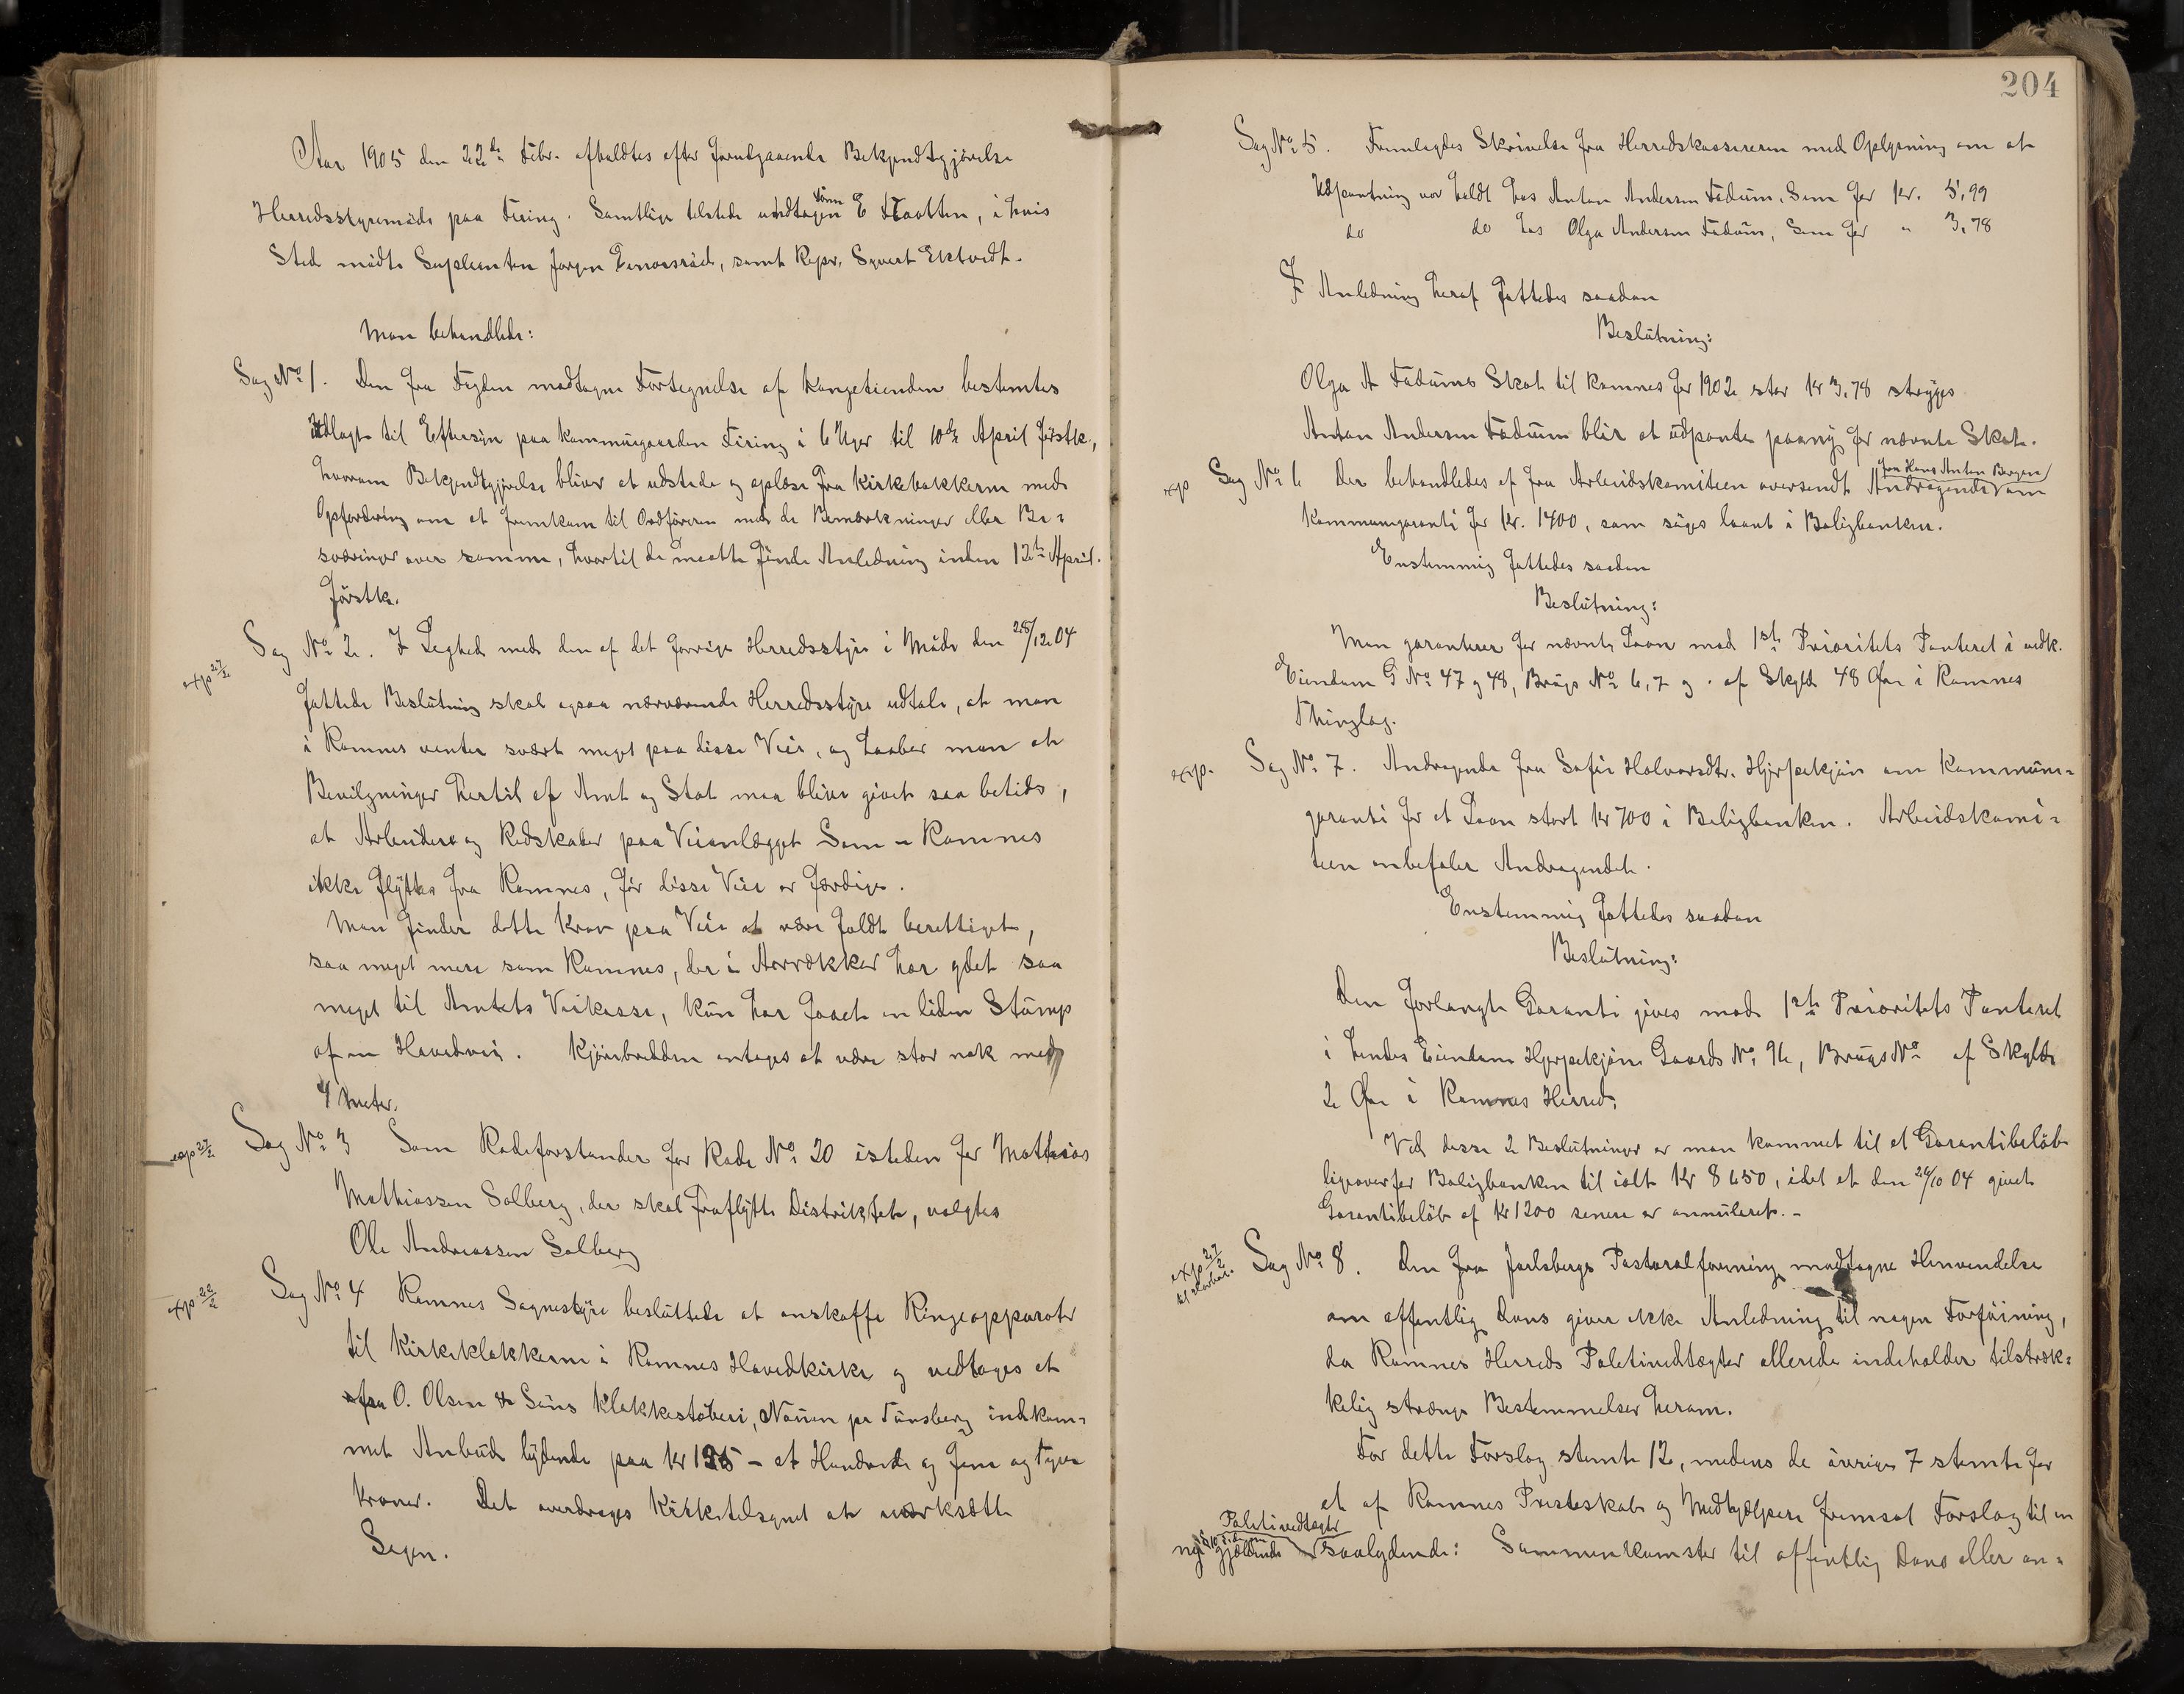 Aar 1905 den 22de Febr. afholdtes efter forudgaaende Bekjendtgjørelse
Herredsstyremøde paa Firing. Samtlige tilstede undtagen E Flaatten, i hvis
Sted mødte Suplianten Jørgen samt Repr. Syvert
Man behandlede:
Sag No 1. Den fra Fogden modtagne Fortegnelse af Kongetienden bestemtes
udlagt til Eftersyn paa Kommunegaarden Firing i 6 Uger til 10de April førstk.,
hvorom Bekjendtgjørelse bliver at udstede og oplæse fra Kirkebakkerne med
Opfordring om at fremkom til Ordføreren med de Bemærkninger eller Be-
sværinger over samme, hvortil de maatte finde Anledning inden 12te April.
førstk.
exp 27/2
Sag No 2. I Lighed med den af det forrige Herredsstyre i Møde den 28/12 04
fattede Beslutning skal ogsaa nærværende Herredsstyre udtale, at man
i Ramnes venter svært meget paa disse Veie, og haaber man at
Bevilgninger hertil af Amt og Stat maa blive givet saa betids,
at Arbeidere og Redskaber paa Veianlægget Sem - Ramnes
ikke flyttes fra Ramnes, før disse Veie er færdige.
Man finder dette Krav paa Veie at være fuldt berettiget,
saa meget mere som Ramnes, der i Aarrækker har ydet saa
meget til Amtets Veikasse, kun har faaet en liden Stump
af en Hovedvei. Kjørebredden antages at være stor nok med
4 Meter.
exp 27/2
Sag No 3 Som Rodeforstander for Rode No 20 isteden for Mathias
Mathiassen Solberg, der skal fraflytte Distriktet, valgtes
Ole Andreassen Solberg
exp 22/2
Sag No 4 Ramnes Sognestyre besluttede at anskaffe Ringeapparater
til Kirkeklokkerne i Ramnes Hovedkirke og vedtages et
fra O. Olsen & Søns Klokkestøberi, Nauen pr Tønsberg indkom-
met Anbud lydende paa Kr 125 - et Hundrede og fem og tyve
Kroner. Det overdrages Kirketilsynet at iværksætte
Sagen.
204
Sag No 5. Fremlagdes Skrivelse fra Herredskassereren med Oplysning om at
Udpantning var holdt hos Anton Andersen Fadum, Sem for Kr. 5,99
do do hos Olga Andersen Fadum, Sem for " 3,78
I Anledning heraf fattedes saadan
Beslutning:
Olga A Fadums Skat til Ramnes for 1902 stor Kr 3,78 stryges
Anton Andersen Fadum blir at udpante paany for nævnte Skat.
fra Hans Anton Bergan
exp Sag No 6 Der behandledes et fra Arbeidskomiteen oversendt Andragende om
Kommunegaranti for Kr. 1400, som søges laant i Boligbanken.
Enstemmig fattedes saadan
Beslutning:
Man garanterer for nævnte Laan mod 1ste Prioritets Panteret i vedk.
Eiendom G No 47 og 48, Brugs No 6, 7 og . af Skyld 48 Øre i Ramnes
Thinglag.
exp. Sag No 7. Andragende fra Sofie Halvorsdtr. Hjerpekjøn om Kommune-
garanti for et Laan stort Kr 700 i Boligbanken. Arbeidskomi-
teen anbefaler Andragendet.
Enstemmig fattedes saadan
Beslutning:
Den forlangte Garanti gives mod 1ste Prioritets Panteret
i hendes Eiendom Hjerpekjøn Gaards No 96, Brugs No af Skyld
2 Øre i Ramnes Herred.
Ved disse 2 Beslutninger er man kommet til et Garantibeløb
ligeoverfor Boligbanken til ialt Kr 8650, idet et den 26/10 04 givet
Garantibeløb af Kr 1200 senere er annuleret. -
exp 27/2
Sag No 8. Den fra Jarlsbergs Pastoralforening modtagne Henvendelse
om offentlig Dans giver ikke Anledning til nogen Forføining,
da Ramnes Herreds Politivedtægter allerede indeholder tilstræk-
kelig strænge Bestemmelser herom.
For dette Forslag stemte 12, medens de øvrige 7 stemte for
et af Ramnes Presteskab og Medhjælpere fremsat Forslag til en
Politivedtægter
ny gjældende saalydende: Sammenkomster til offentlig Dans eller an-